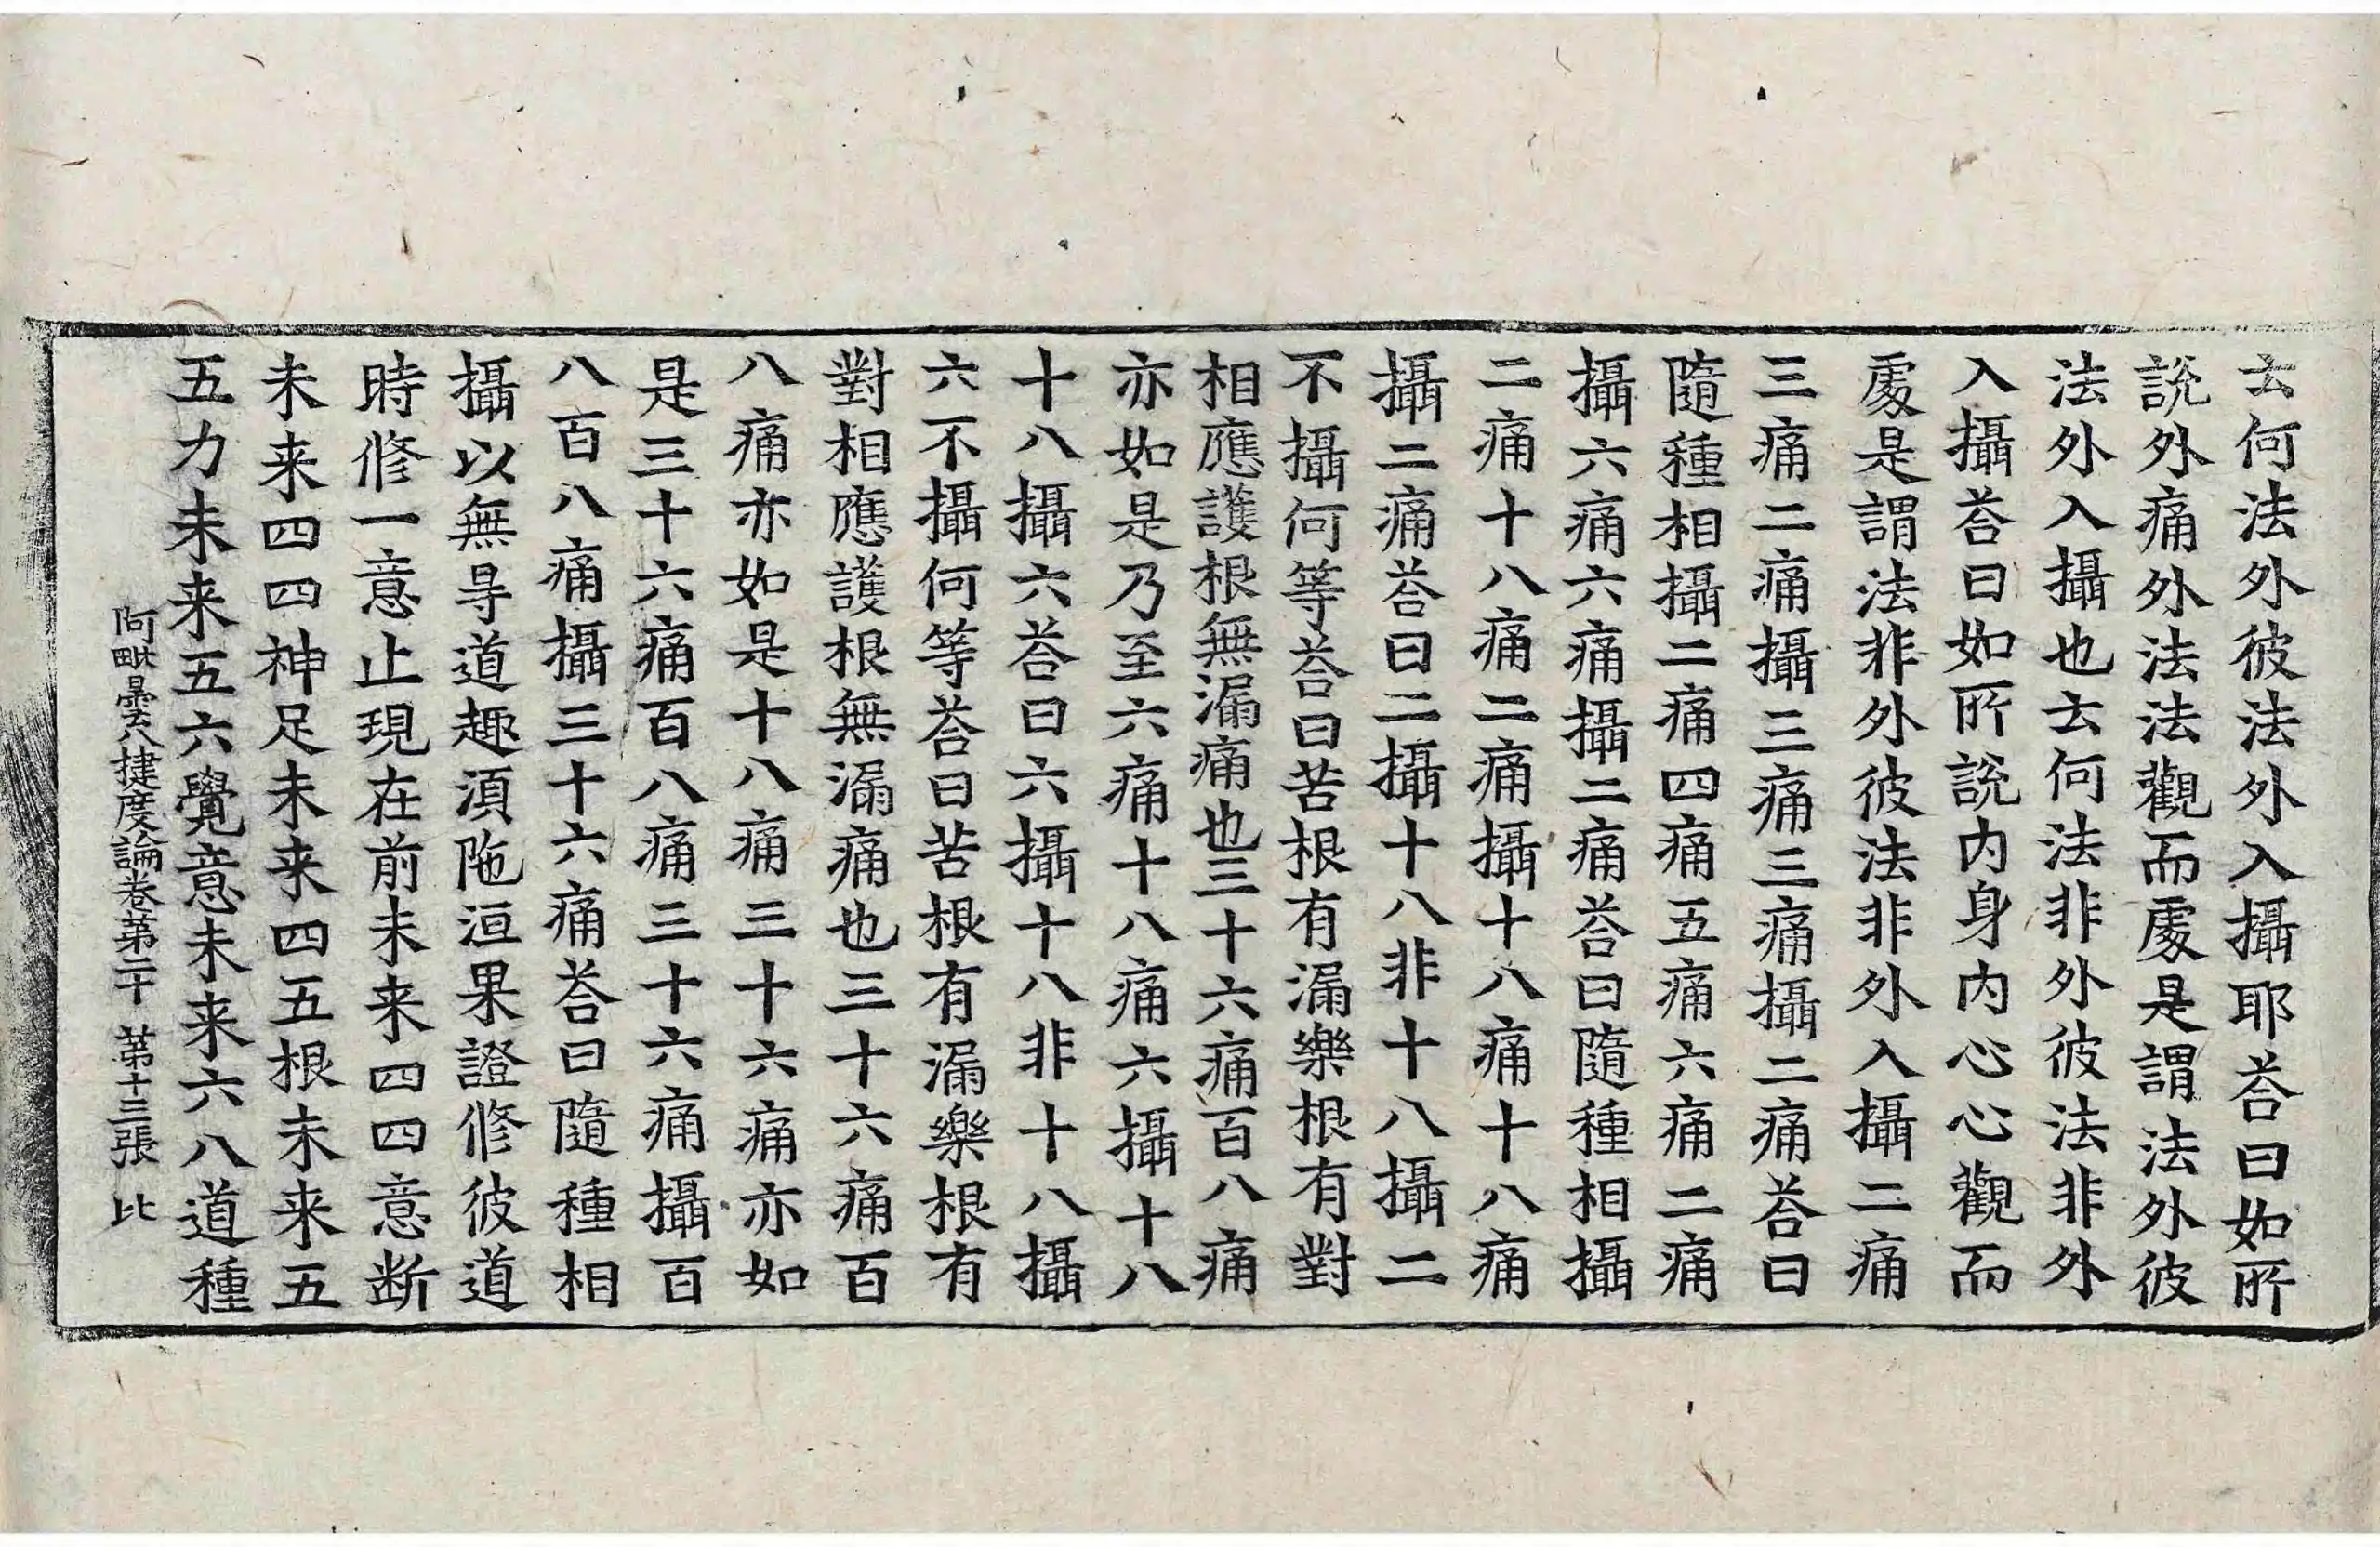 云何法外彼法外入攝耶荅曰如所
說外痛外法法觀而處是謂法外彼
法外入攝也云何法非外彼法非外
入攝荅曰如所說內身內心心觀而
處是謂法非外彼法非外入攝二痛
三痛二痛攝三痛三痛攝二痛荅曰
隨種相攝二痛四痛五痛六痛二痛
攝六痛六痛攝二痛荅曰隨種相攝
二痛十八痛二痛攝十八痛十八痛
攝二痛荅曰二攝十八非十八攝二
不攝何等荅曰苦根有漏樂根有對
相應護根無漏痛也三十六痛百八痛
亦如是乃至六痛十八痛六攝十八
十八攝六荅曰六攝十八非十八攝
六不攝何等荅曰苦根有漏樂根有
對相應護根無漏痛也三十六痛百
八痛亦如是十八痛三十六痛亦如
是三十六痛百八痛三十六痛攝百
八百八痛攝三十六痛荅曰隨種相
攝以無㝵道趣湏陁洹果證修彼道
時修一意止現在前未来四四意断
未来四四神足未来四五根未来五
五力未来五六覺意未来六八道種
阿毗曇八揵度論卷第二十 第十三張 比